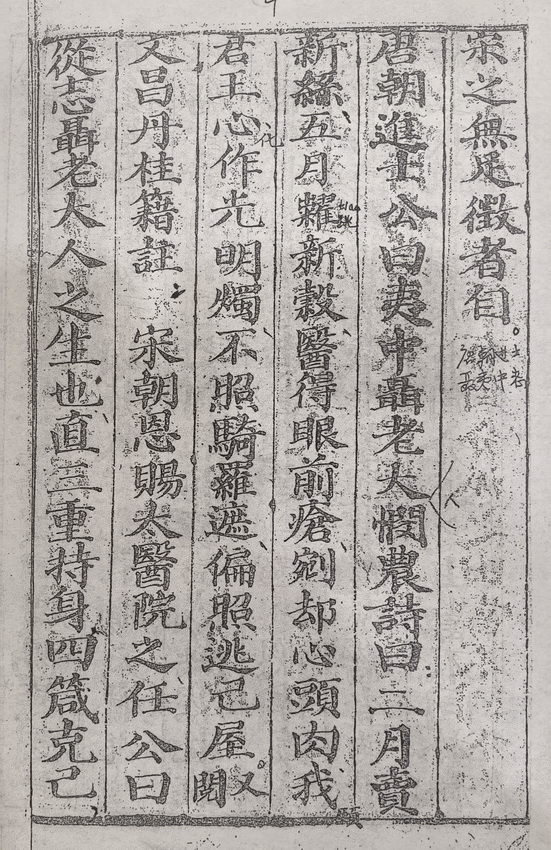 宋之無足徵者自
唐朝進士公曰夷中聶老大憫農詩曰二月賣
新絲五月糶新穀醫得眼前瘡剜却心頭肉我
君王心作光明燭不照騎羅遮偏照逃己屋又閱
文昌丹桂籍註 宋朝恩賜太醫院之任公曰
從志聶老大人之生也直三重持身四箴克己